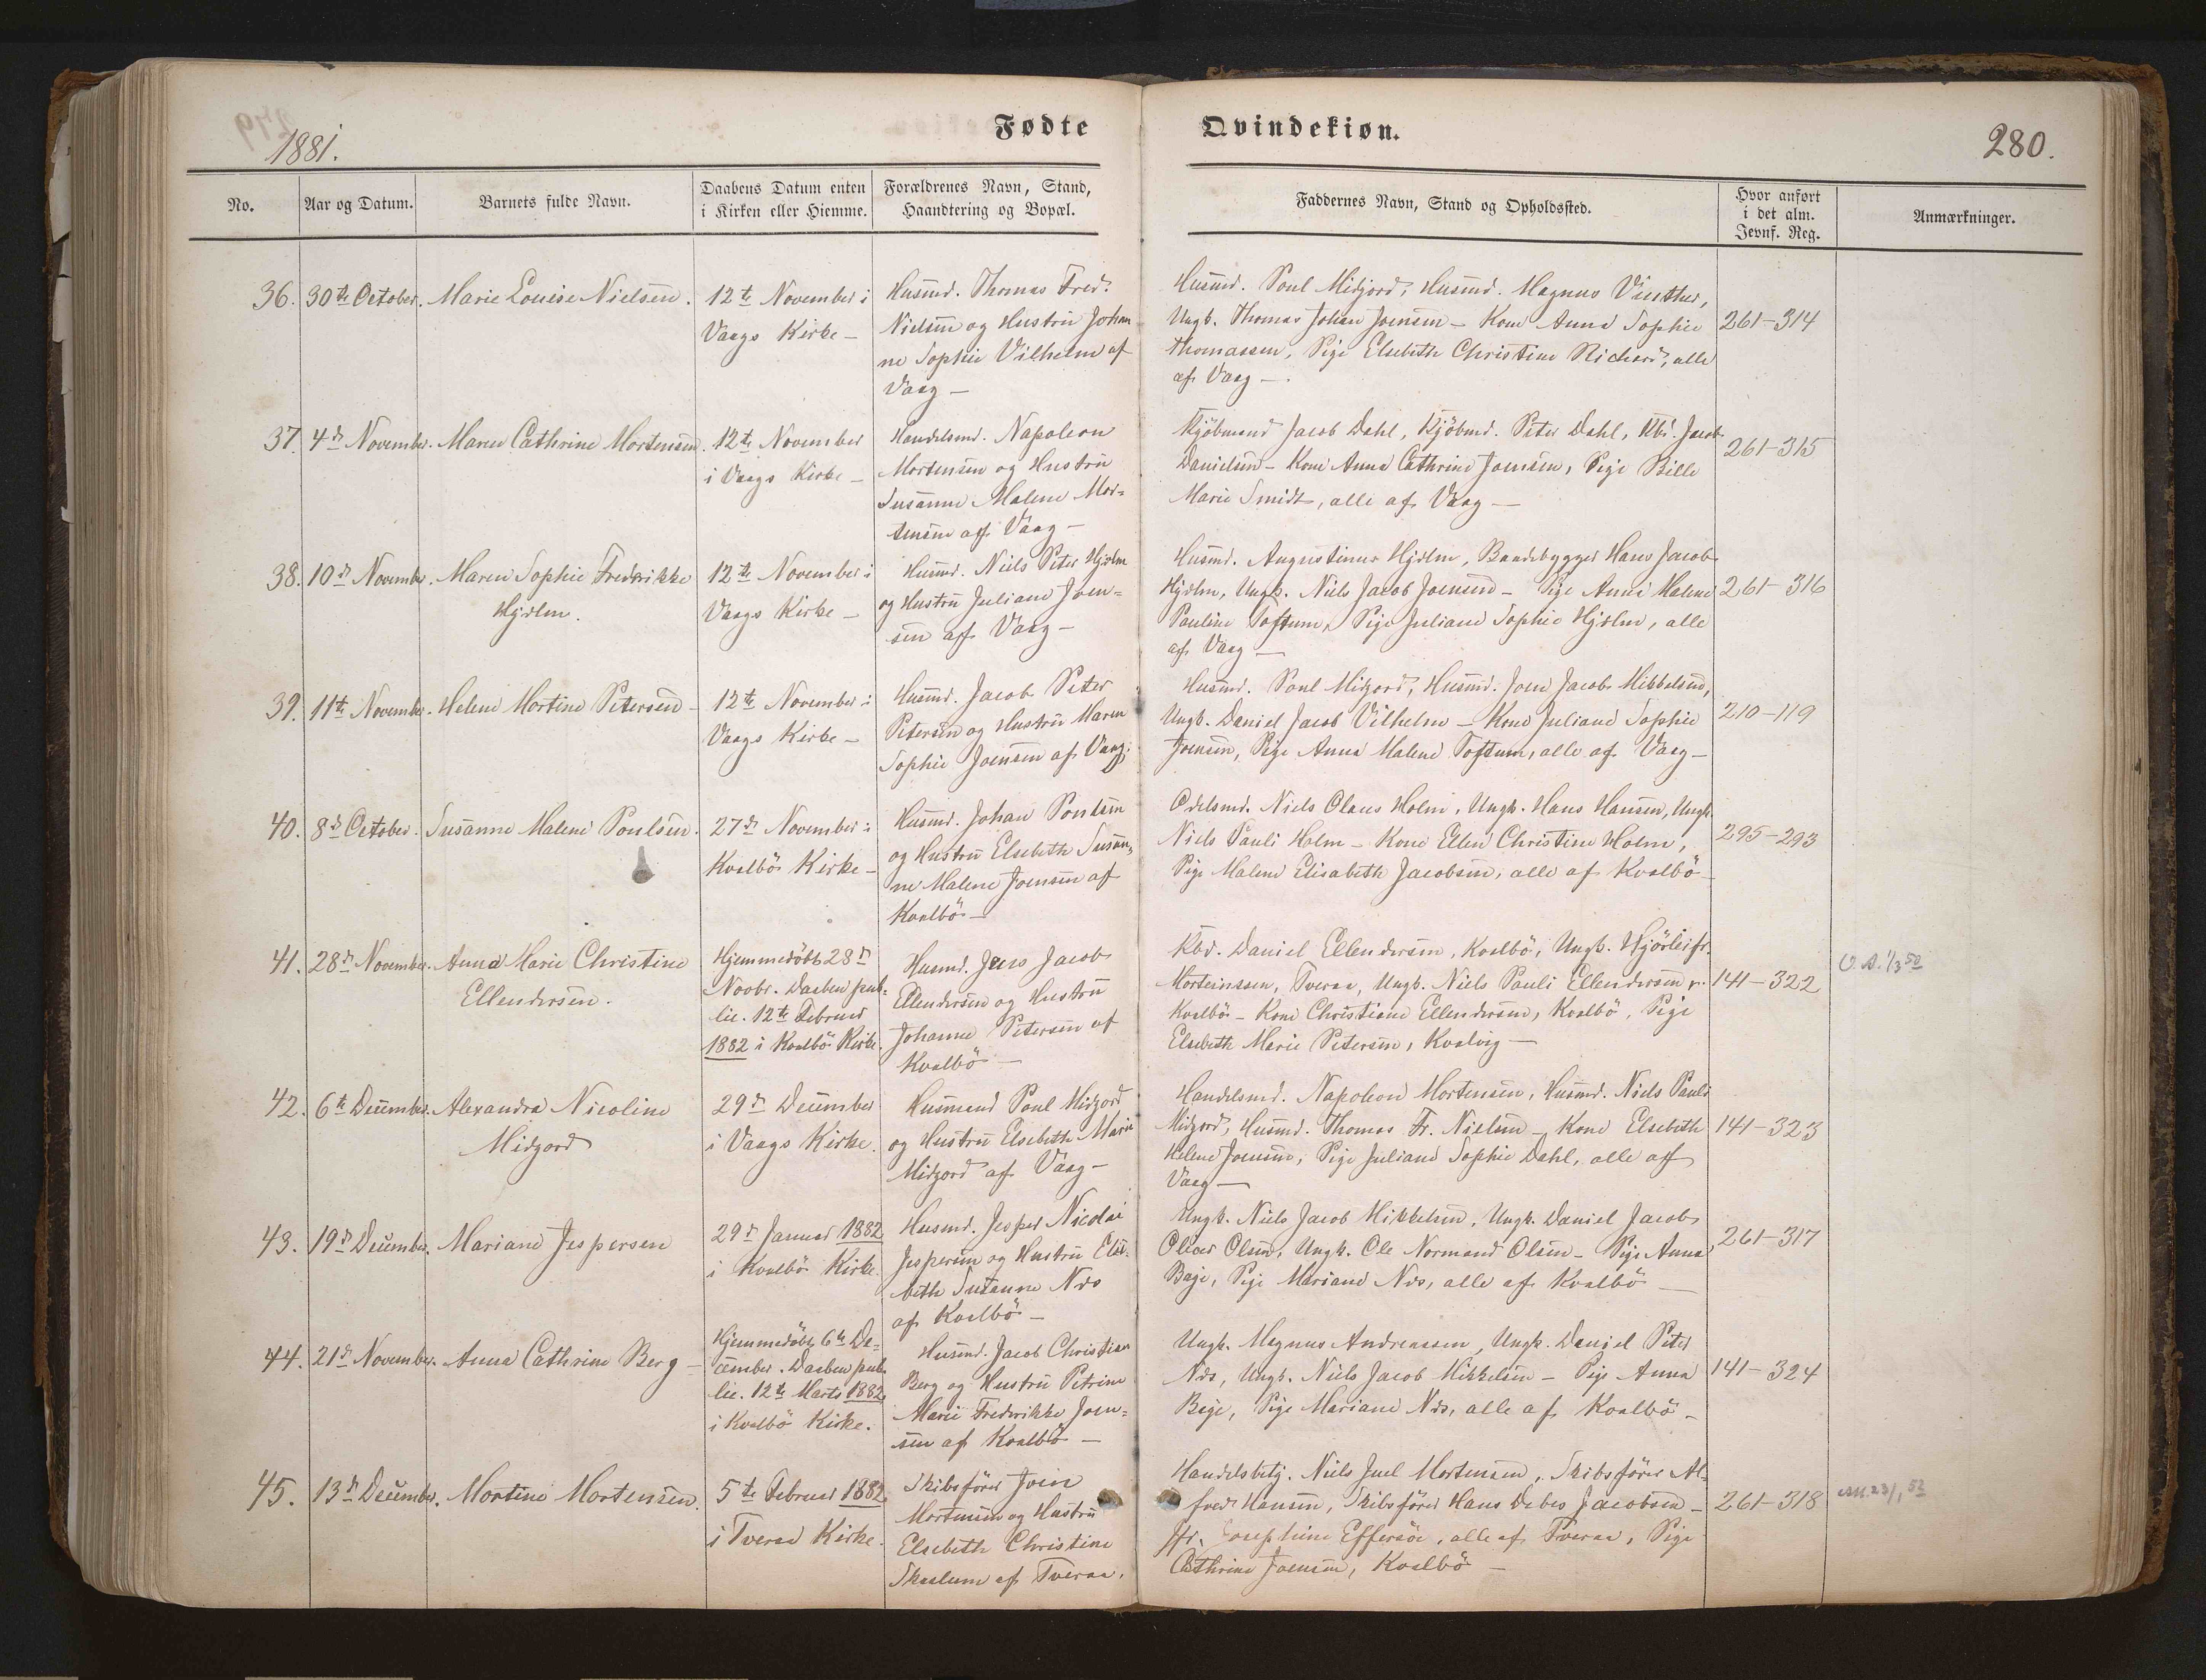 1881.
Fødte
Qvindekiøn.
280.
No.
Aar og Datum.
Barnets fulde Navn.
Daabens Datum enten
i Kirken eller Hiemme.
Forældrenes Navn, Stand,
Haandtering og Bopæl.
Faddernes Navn, Stand og Opholdssted.
Hvor anført
i det alm.
Jevnf. Reg.
Anmærkninger.
36.
30te October.
Marie Louise Nielsen.
12te November i
Vaags Kirke —
Husmd. Thomas Fred.
Nielsen og Hustru Johan
ne Sophie Vilhelm af
Vaag —
Husmd. Poul Midjord, Husmd. Magnus Vinther,
Ungk. Thomas Johan Joensen — Kone Anna Sophie
Thomassen, Pige Elsebeth Christine Richard, alle
af Vaag —.
261-314
37.
4de November.
Maren Cathrine Mortensen.
12te November
i Vaags Kirke —
Handelsmd. Napoleon
Mortensen og Hustru
Susanne Malene Mor=
tensen af Vaag —
Kjöbmand Jacob Dahl, Kjöbmd. Peter Dahl, Kbd. Jacob
Danielsen — Kone Anna Cathrine Joensen, Pige Bille
Marie Smidt, alle af Vaag —
261-315
38.
10de November.
Maren Sophie Frederikke
Hjelm.
12te November i
Vaags Kirke —
Husmd. Niels Peter Hjelm
og Hustru Juliane Joen=
sen af Vaag —
Husmd. Augustinus Hjelm, Baadebygger Hans Jacob
Hjelm, Ungk. Niels Jacob Joensen — Pige Anna Malene
Pauline Toftum, Pige Juliane Sophie Hjelm, alle
af Vaag —
261-316
39.
11te November.
Helene Mortine Petersen —
12te November i
Vaags Kirke —
Husmd. Jacob Peter
Petersen og Hustru Maren
Sophie Joensen af Vaag.
Husmd. Poul Midjord, Husmd. Joen Jacob Mikkelsen,
Ungk. Daniel Jacob Vilhelm — Kone Juliane Sophie
Joensen, Pige Anna Malene Toftum, alle af Vaag —
210-119
40.
8de October.
Susanne Malene Poulsen.
27de November i
Kvalbö Kirke —
Husmd. Johan Poulsen
og Hustru Elsebeth Susan=
ne Malene Joensen af
Kvalbö —
Odelsmd. Niels Olaus Holm, Ungk. Hans Hansen, Ungk.
Niels Pauli Holm — Kone Ellen Christine Holm,
Pige Malene Elisabeth Jacobsen, alle af Kvalbö —
295-293
41.
28de November.
Anna Marie Christine
Ellendersen.
Hjemmedöbt 28de
Novbr. Daaben pub=
lic. 12te Februar
1882 i Kvalbö Kirke.
Husmd. Jens Jacob
Ellendersen og Hustru
Johanne Petersen af
Kvalbö —
Kbd. Daniel Ellendersen, Kvalbö, Ungk. Hjörleifr.
Morteinssen, Tveraa, Ungk. Niels Pauli Ellendersen
Kvalbö — Kone Christiane Ellendersen, Kvalbö, Pige
Elsebeth Marie Petersen, Kvalvig —
141-322
42.
6te December.
Alexandra Nicoline
Midjord
29de December
i Vaags Kirke.
Husmand Poul Midjord
og Hustru Elsebeth Marie
Midjord af Vaag —
Handelsmd. Napoleon Mortensen, Husmd. Niels Pauli
Midjord, Husmd. Thomas Fr. Nielsen — Kone Elsebeth
Helene Joensen, Pige Juliane Sophie Dahl, alle af
Vaag —
141-323
43.
19de December.
Mariane Jespersen
29de Januar 1882
i Kvalbö Kirke.
Husmd. Jesper Nicolai
Jespersen og Hustru Else=
beth Susanne Næs
af Kvalbö —
Ungk. Niels Jacob Mikkelsen, Ungk. Daniel Jacob
Oliver Olsen, Ungk. Ole Normand Olsen — Pige Anna
Beje, Pige Mariane Næs, alle af Kvalbö —
261-317
44.
21de November.
Anna Cathrine Berg —
Hjemmedöbt 6te De=
cember. Daaben pub=
lic. 12te Marts 1882
i Kvalbö Kirke.
Husmd. Jacob Christian
Berg og Hustru Petrine
Marie Frederikke Joen=
sen af Kvalbö —
Ungk. Magnus Andreassen, Ungk. Daniel Peter
Næs, Ungk. Niels Jacob Mikkelsen — Pige Anna
Beje, Pige Mariane Næs, alle af Kvalbö —
141-324
45.
13de December.
Mortine Mortensen.
5te Februar 1882
i Tveraa Kirke.
Skibsförer Joen
Mortensen og Hustru
Elsebeth Christine
Skaalum af Tveraa.
Handelsbetj. Niels Juel Mortensen, Skibsförer Al=
fred Hansen, Skibsförer Hans Debes Jacobsen —
Josephine Effersöe, alle af Tveraa, Pige
Cathrine Joensen, Kvalbö —
261-318